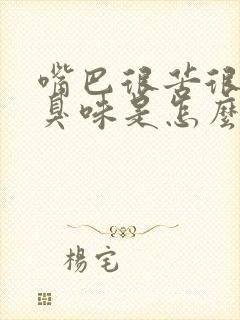 嘴巴很苦很
臭味是怎麼
楊宅